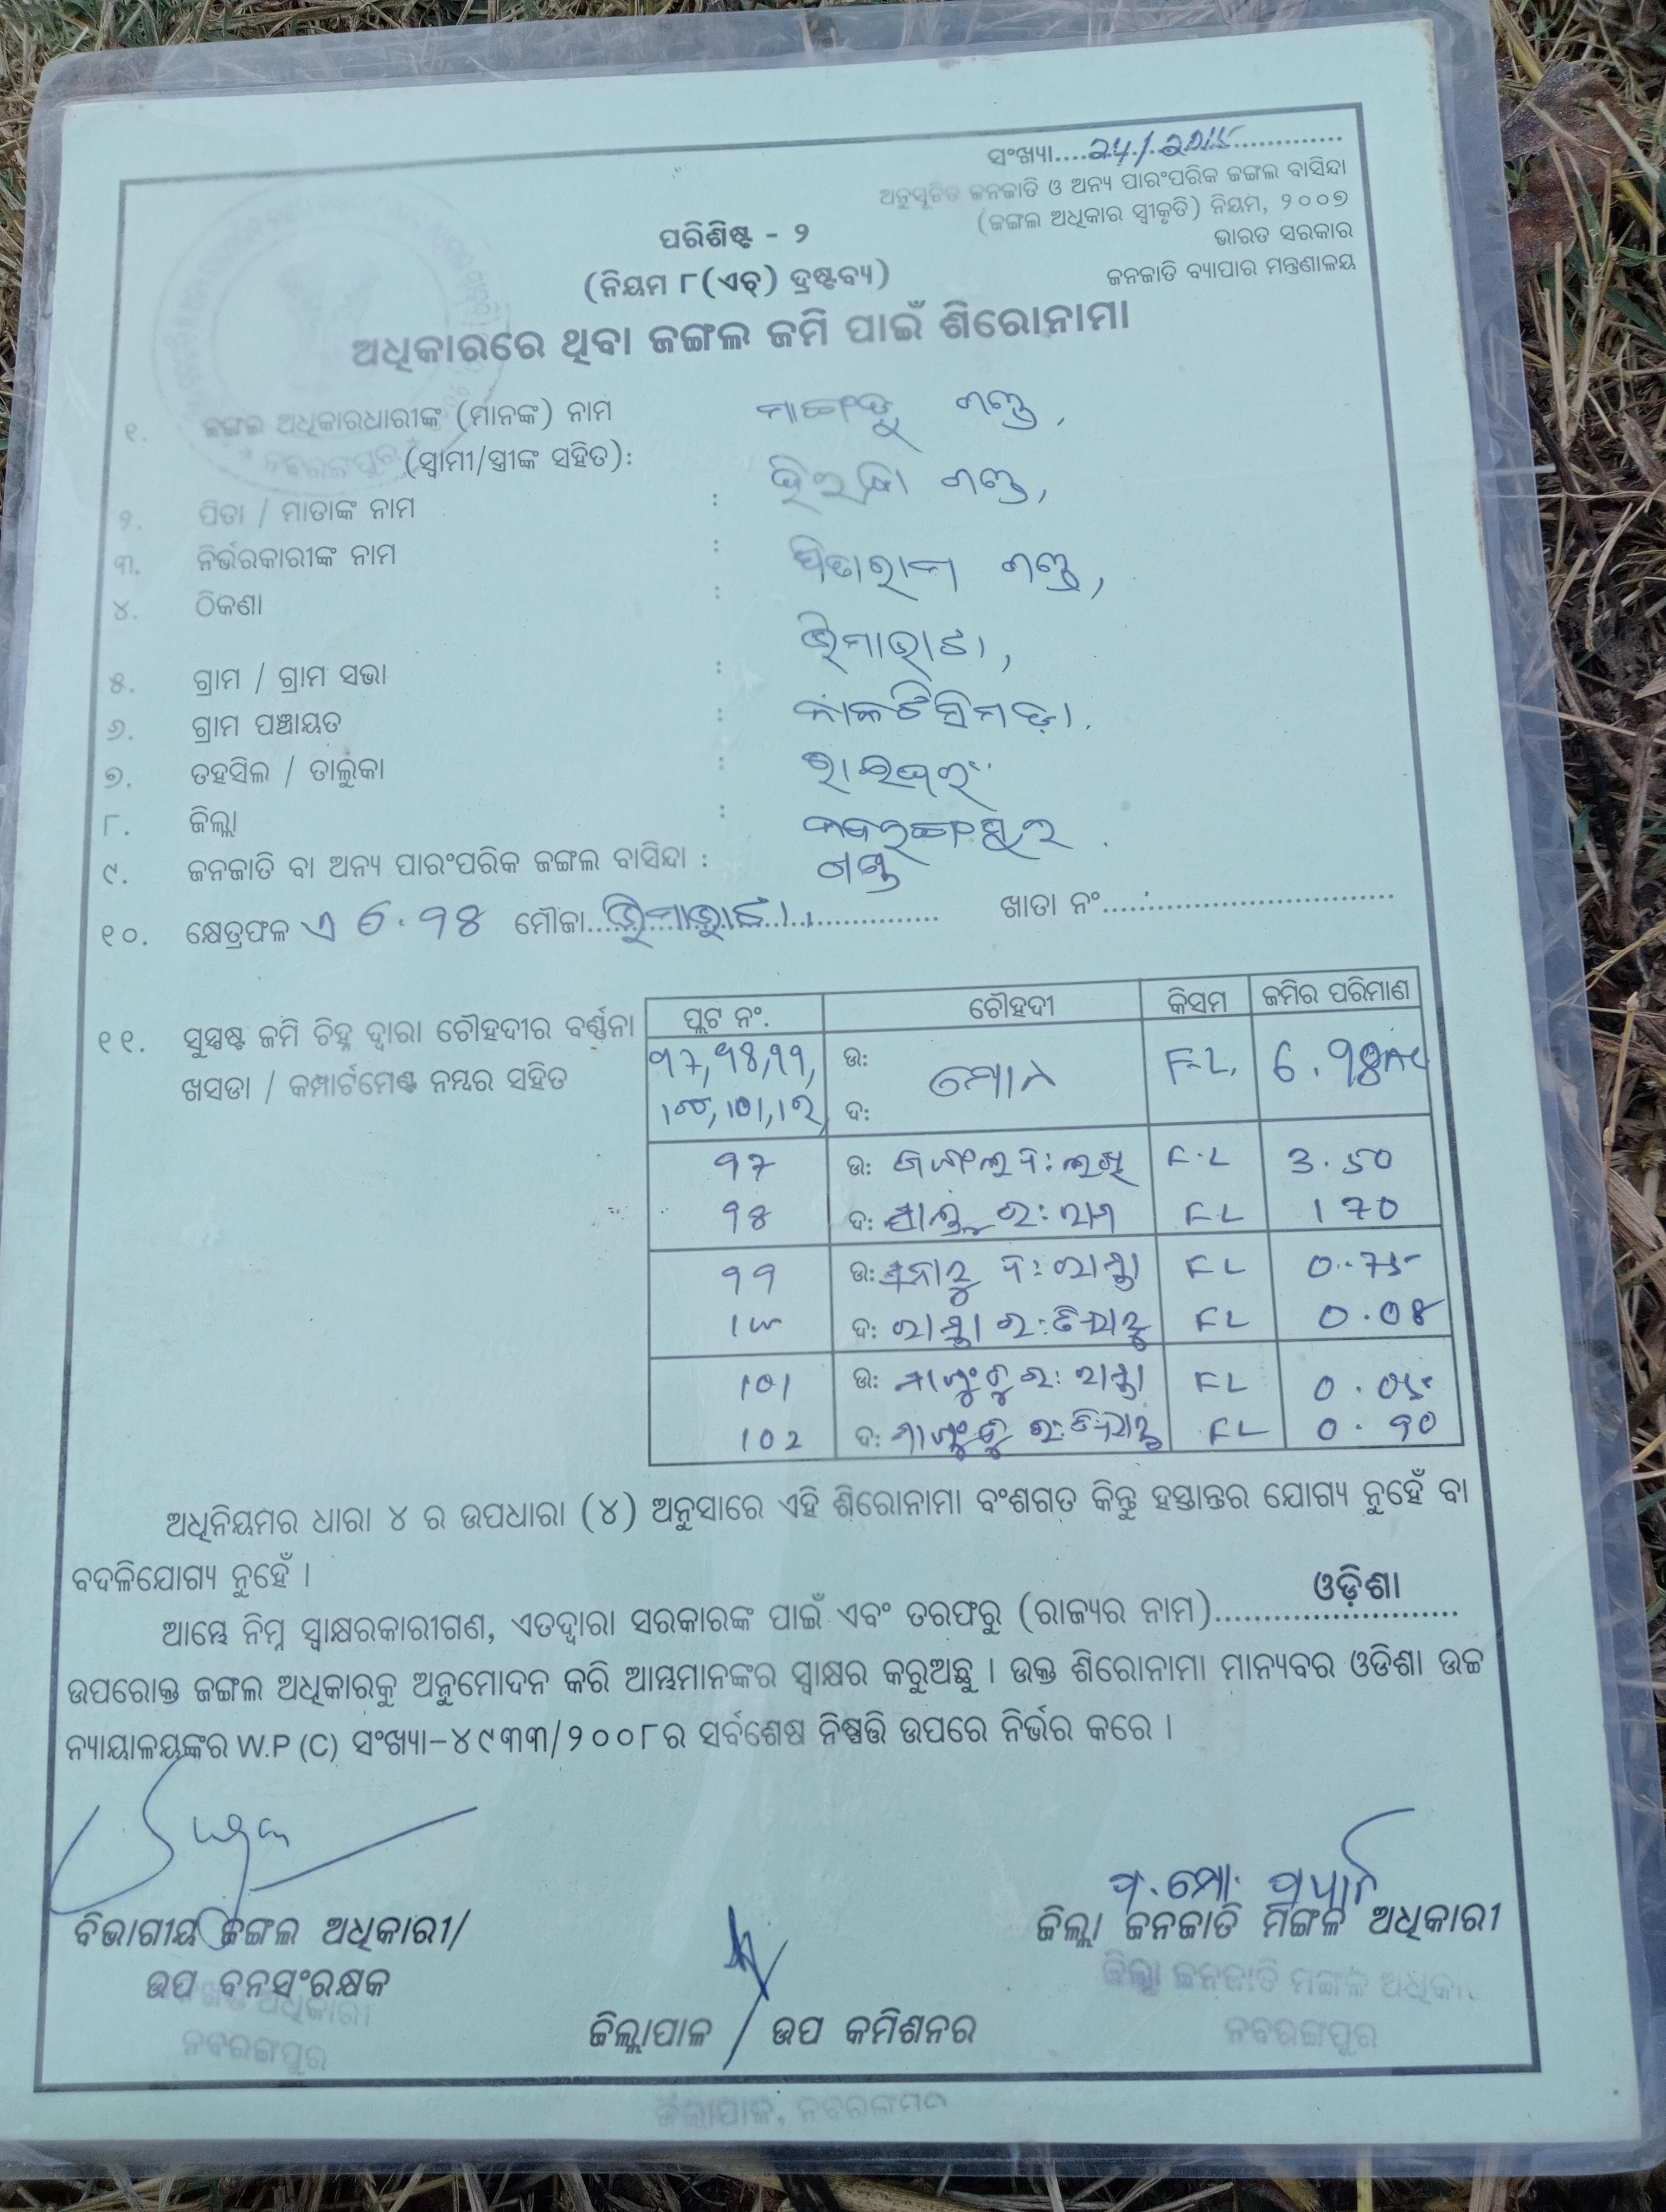 ସଂଖ୍ୟା....24/2015
ଅନୁସୂଚିତ ଜନଜାତି ଓ ଅନ୍ୟ ପାରଂପରିକ ଜଙ୍ଗଲ ବାସିନ୍ଦା
(ଜଙ୍ଗଲ ଅଧିକାର ସ୍ୱୀକୃତି) ନିୟମ, ୨୦୦୭
ଭାରତ ସରକାର
ଜନଜାତି ବ୍ୟାପାର ମନ୍ତ୍ରଣାଳୟ
ପରିଶିଷ୍ଟ - ୨
(ନିୟମ ୮(ଏଚ୍) ଦ୍ରଷ୍ଟବ୍ୟ)
ଅଧିକାରରେ ଥିବା ଜଙ୍ଗଲ ଜମି ପାଇଁ ଶିରୋନାମା
୧. ଜଙ୍ଗଲ ଅଧିକାରଧାରୀଙ୍କ (ମାନଙ୍କ) ନାମ ଗଣ୍ଡ,
(ସ୍ୱାମୀ/ସ୍ତ୍ରୀଙ୍କ ସହିତ):
୨. ପିତା / ମାତାଙ୍କ ନାମ : ଗଣ୍ଡ,
୩. ନିର୍ଭରକାରୀଙ୍କ ନାମ : ଗଣ୍ଡ,
୪. ଠିକଣା :
୫. ଗ୍ରାମ / ଗ୍ରାମ ସଭା : ଭିମାଭାଟା,
୬. ଗ୍ରାମ ପଞ୍ଚାୟତ :
୭. ତହସିଲ / ତାଲୁକା : ରାଇଘର
୮. ଜିଲ୍ଲା : ନବରଙ୍ଗପୁର
୯. ଜନଜାତି ବା ଅନ୍ୟ ପାରଂପରିକ ଜଙ୍ଗଲ ବାସିନ୍ଦା : ଗଣ୍ଡ
୧୦. କ୍ଷେତ୍ରଫଳ ଏ 6.98 ମୌଜା....ଭିମାଭାଟା, ଖାତା ନଂ......
୧୧. ସୁସ୍ପଷ୍ଟ ଜମି ଚିହ୍ନ ଦ୍ୱାରା ଚୌହଦୀର ବର୍ଣ୍ଣନା
ଖସଡା / କମ୍ପାର୍ଟମେଣ୍ଟ ନମ୍ବର ସହିତ
ପ୍ଲଟ ନଂ. ଚୌହଦୀ କିସମ ଜମିର ପରିମାଣ
97, 98, 99, ଉ: ମୋଟ F.L. 6.98 AC
100, 101, 102 ଦ:
97 ଉ: F.L 3.50
98 ଦ: FL 1 70
99 ଉ: ରାସ୍ତା FL 0.75
100 ଦ: ରାସ୍ତା FL 0.08
101 ଉ: ରାସ୍ତା FL 0.05
102 ଦ: FL 0.90
ଅଧିନିୟମର ଧାରା ୪ ର ଉପଧାରା (୪) ଅନୁସାରେ ଏହି ଶିରୋନାମା ବଂଶଗତ କିନ୍ତୁ ହସ୍ତାନ୍ତର ଯୋଗ୍ୟ ନୁହେଁ ବା
ବଦଳିଯୋଗ୍ୟ ନୁହେଁ ।
ଆମ୍ଭେ ନିମ୍ନ ସ୍ୱାକ୍ଷରକାରୀଗଣ, ଏତଦ୍ୱାରା ସରକାରଙ୍କ ପାଇଁ ଏବଂ ତରଫରୁ (ରାଜ୍ୟର ନାମ)......ଓଡ଼ିଶା......
ଉପରୋକ୍ତ ଜଙ୍ଗଲ ଅଧିକାରକୁ ଅନୁମୋଦନ କରି ଆମ୍ଭମାନଙ୍କର ସ୍ୱାକ୍ଷର କରୁଅଛୁ । ଉକ୍ତ ଶିରୋନାମା ମାନ୍ୟବର ଓଡିଶା ଉଚ୍ଚ
ନ୍ୟାୟାଳୟଙ୍କର W.P (C) ସଂଖ୍ୟା–୪୯୩୩/୨୦୦୮ ର ସର୍ବଶେଷ ନିଷ୍ପତ୍ତି ଉପରେ ନିର୍ଭର କରେ ।
ପ୍ର. ମୋ. ପ୍ରଧାନ
ବିଭାଗୀୟ ଜଙ୍ଗଲ ଅଧିକାରୀ/ ଜିଲ୍ଲା ଜନଜାତି ମଙ୍ଗଳ ଅଧିକାରୀ
ଉପ ବନସଂରକ୍ଷକ ଜିଲ୍ଲା ଜନଜାତି ମଙ୍ଗଳ ଅଧିକା
ନବରଙ୍ଗପୁର ନବରଙ୍ଗପୁର
ଜିଲ୍ଲାପାଳ / ଉପ କମିଶନର
ଜିଲ୍ଲାପାଳ, ନବରଙ୍ଗପୁର